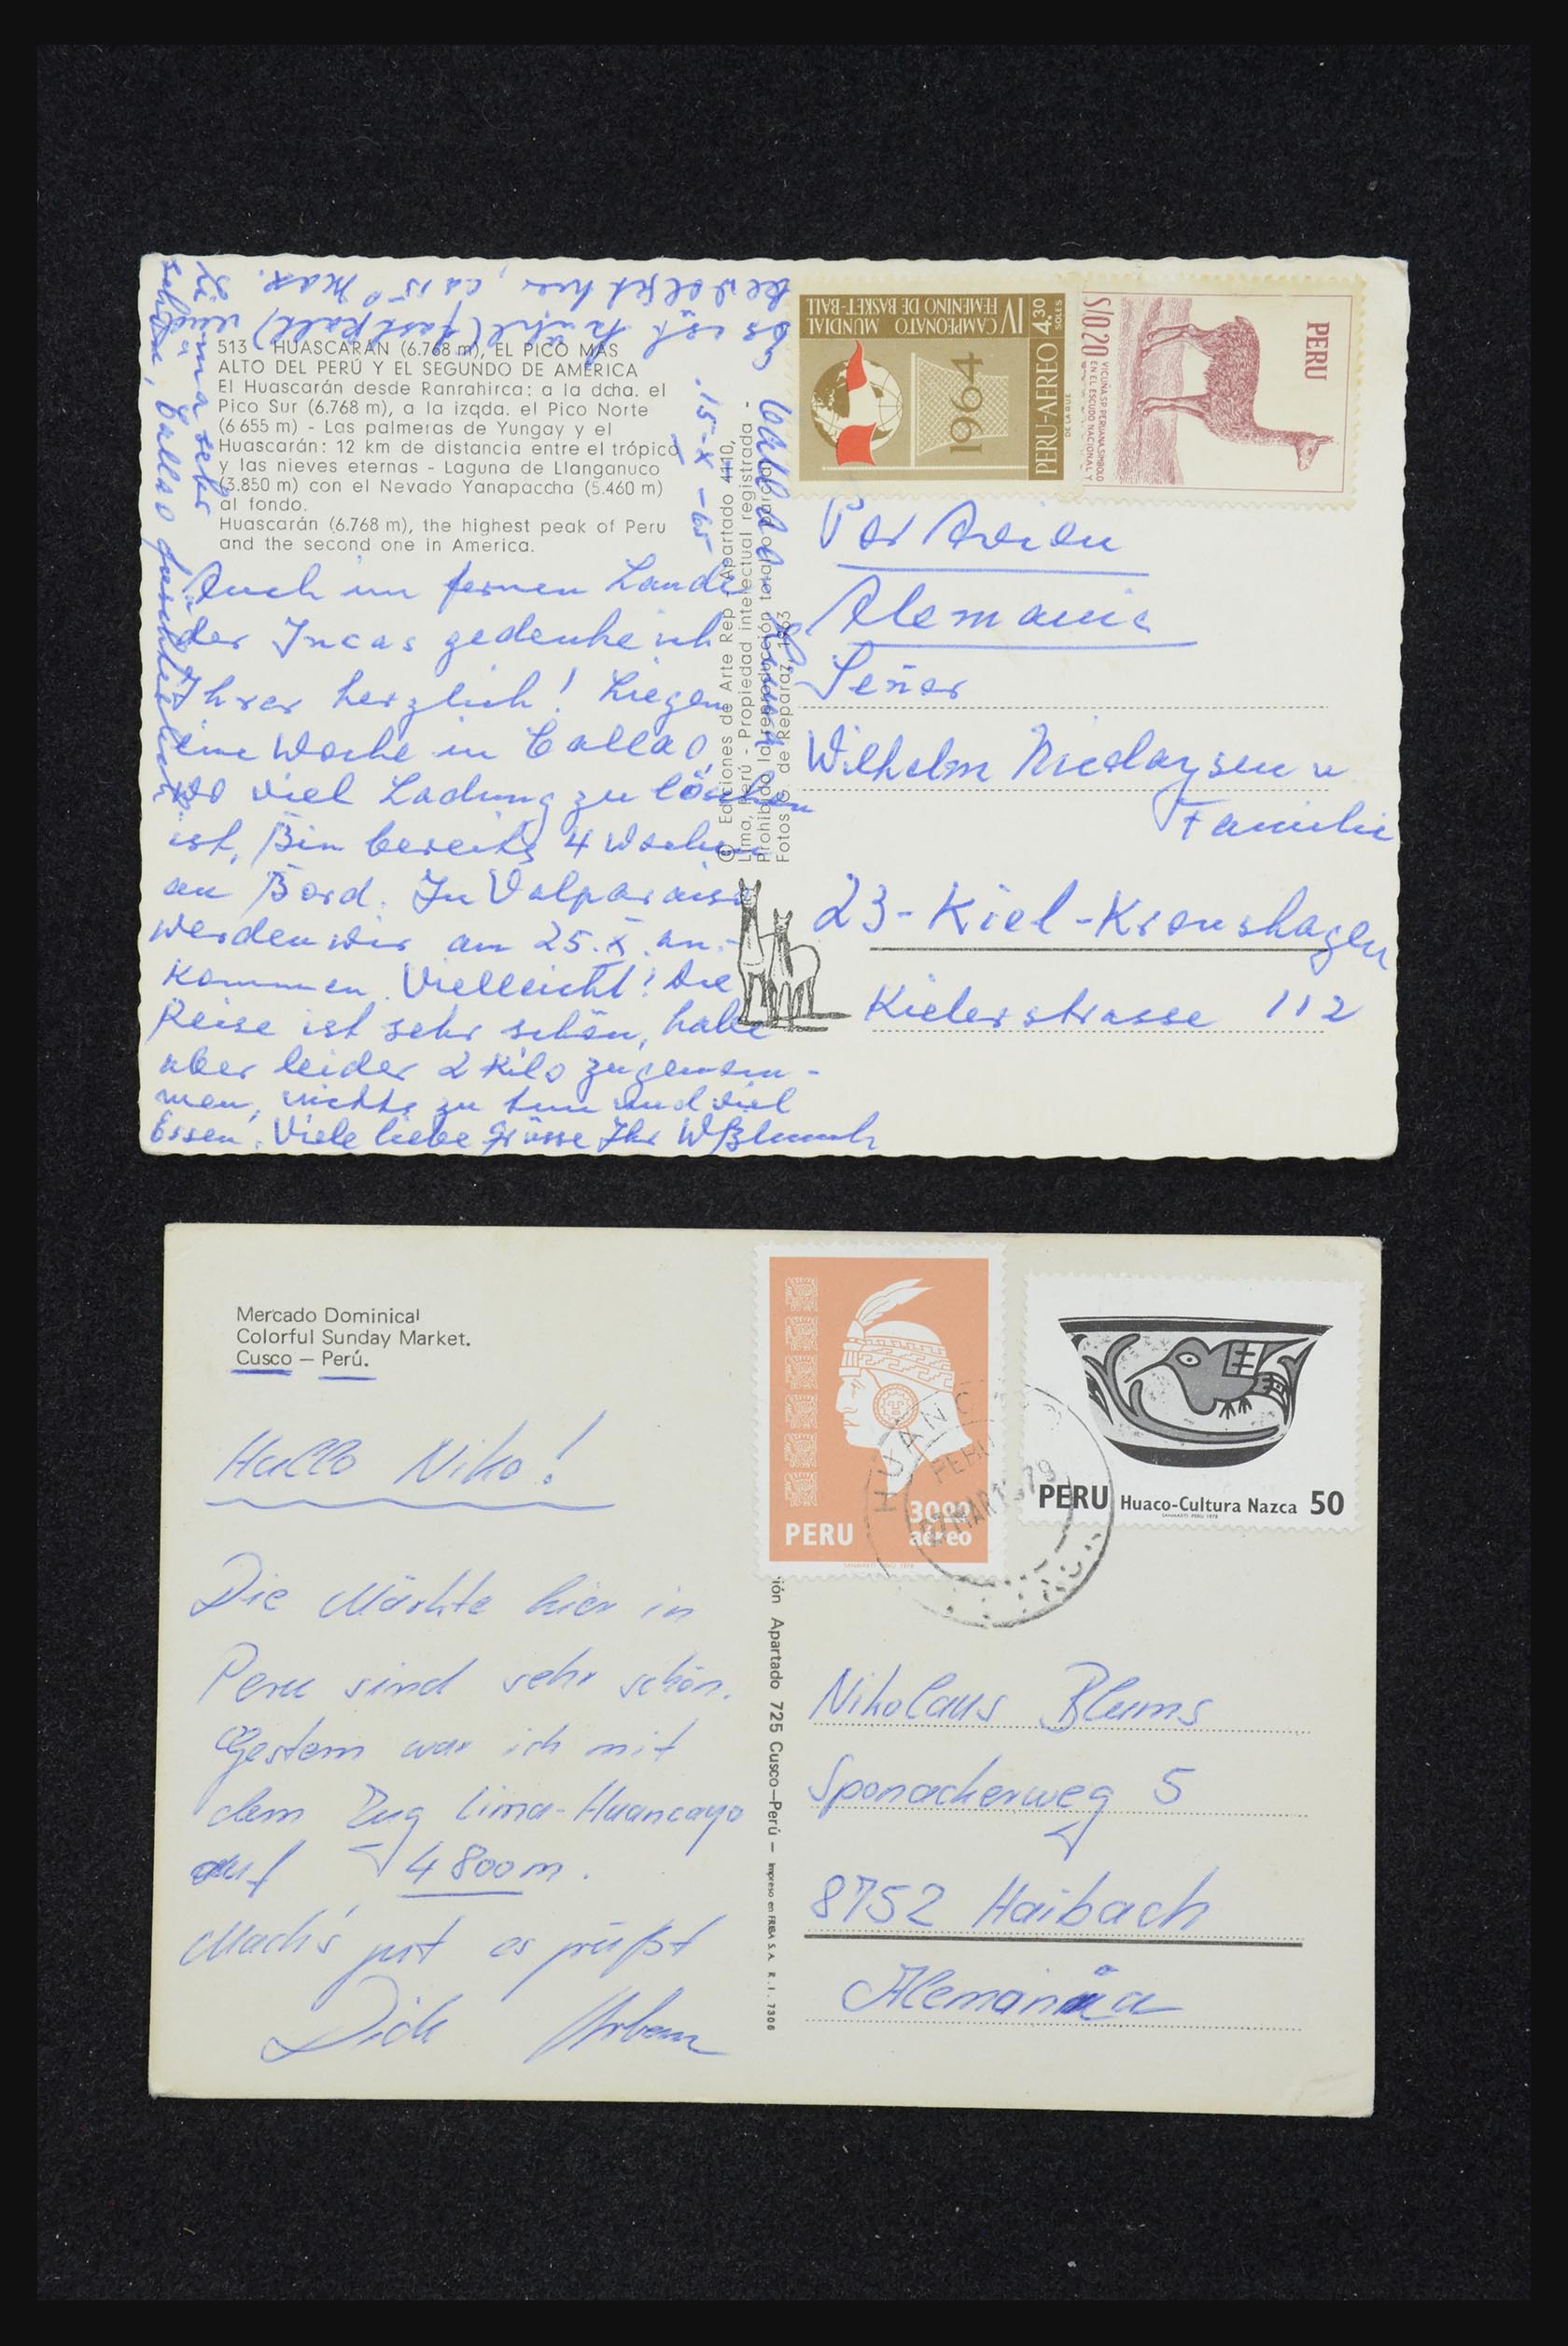 513 - HUASCARÁN (6.768 m), EL PICO MÁS
ALTO DEL PERÚ Y EL SEGUNDO DE AMÉRICA
El Huascarán desde Ranrahirca: a la dcha. el
Pico Sur (6.768 m), a la izqda. el Pico Norte
(6.655 m) - Las palmeras de Yungay y el
Huascarán: 12 km de distancia entre el trópico
y las nieves eternas - Laguna de Llanganuco
(3.850 m) con el Nevado Yanapaccha (5.460 m)
al fondo.
Huascarán (6.768 m), the highest peak of Peru
and the second one in America.
Callao
15-X-65
Auch im fernen Lande
der Incas gedenke ich
Ihrer herzlich! Liegen
eine Woche in Callao,
wo viel Ladung zu löschen
ist, Bin bereits 4 Wochen
an Bord. In Valparaiso
werden wir am 25.X. an-
kommen. Vielleicht! Die
Reise ist sehr schön, habe
aber leider 2 Kilo zugenom-
men, nichts zu tun und viel
Essen. Viele liebe Grüsse Ihr
Es ist kühl (fast kalt) und
bewölkt hier, ca 15° Max.
Lima sehr
schön, Callao
© Ediciones de Arte Rep - Apartado 4110,
Lima, Perú - Propiedad intelectual registrada -
Prohibida la reproducción total o parcial
Fotos G. de Reparaz, 1963
IV CAMPEONATO MUNDIAL
FEMENINO DE BASKET-BALL
1964
PERU-AEREO 4.30
SOLES
PERU
S/0.20
VICUÑA SP. PERUANA SIMBOLO
EN EL ESCUDO NACIONAL Y
DE LA QUE
Por Avion
Alemania
Señor
Wilhelm Nicolaysen u
Familie
23-Kiel-Kronshagen
Kielerstrasse 112
Mercado Dominical
Colorful Sunday Market.
Cusco – Perú.
Hallo Niko!
Die Märkte hier in
Peru sind sehr schön.
Gestern war ich mit
dem Zug Lima-Huancayo
auf 4800m.
Mach's gut es grüßt
Dich
ión Apartado 725 Cusco–Perú – Impreso en FRIBA S.A. R.I. 7306
PERU
30.00
aéreo
PERU Huaco-Cultura Nazca 50
HUANC
PERU
MAR 1979
Nikolaus Blums
Sponackerweg 5
8752 Haibach
Alemania